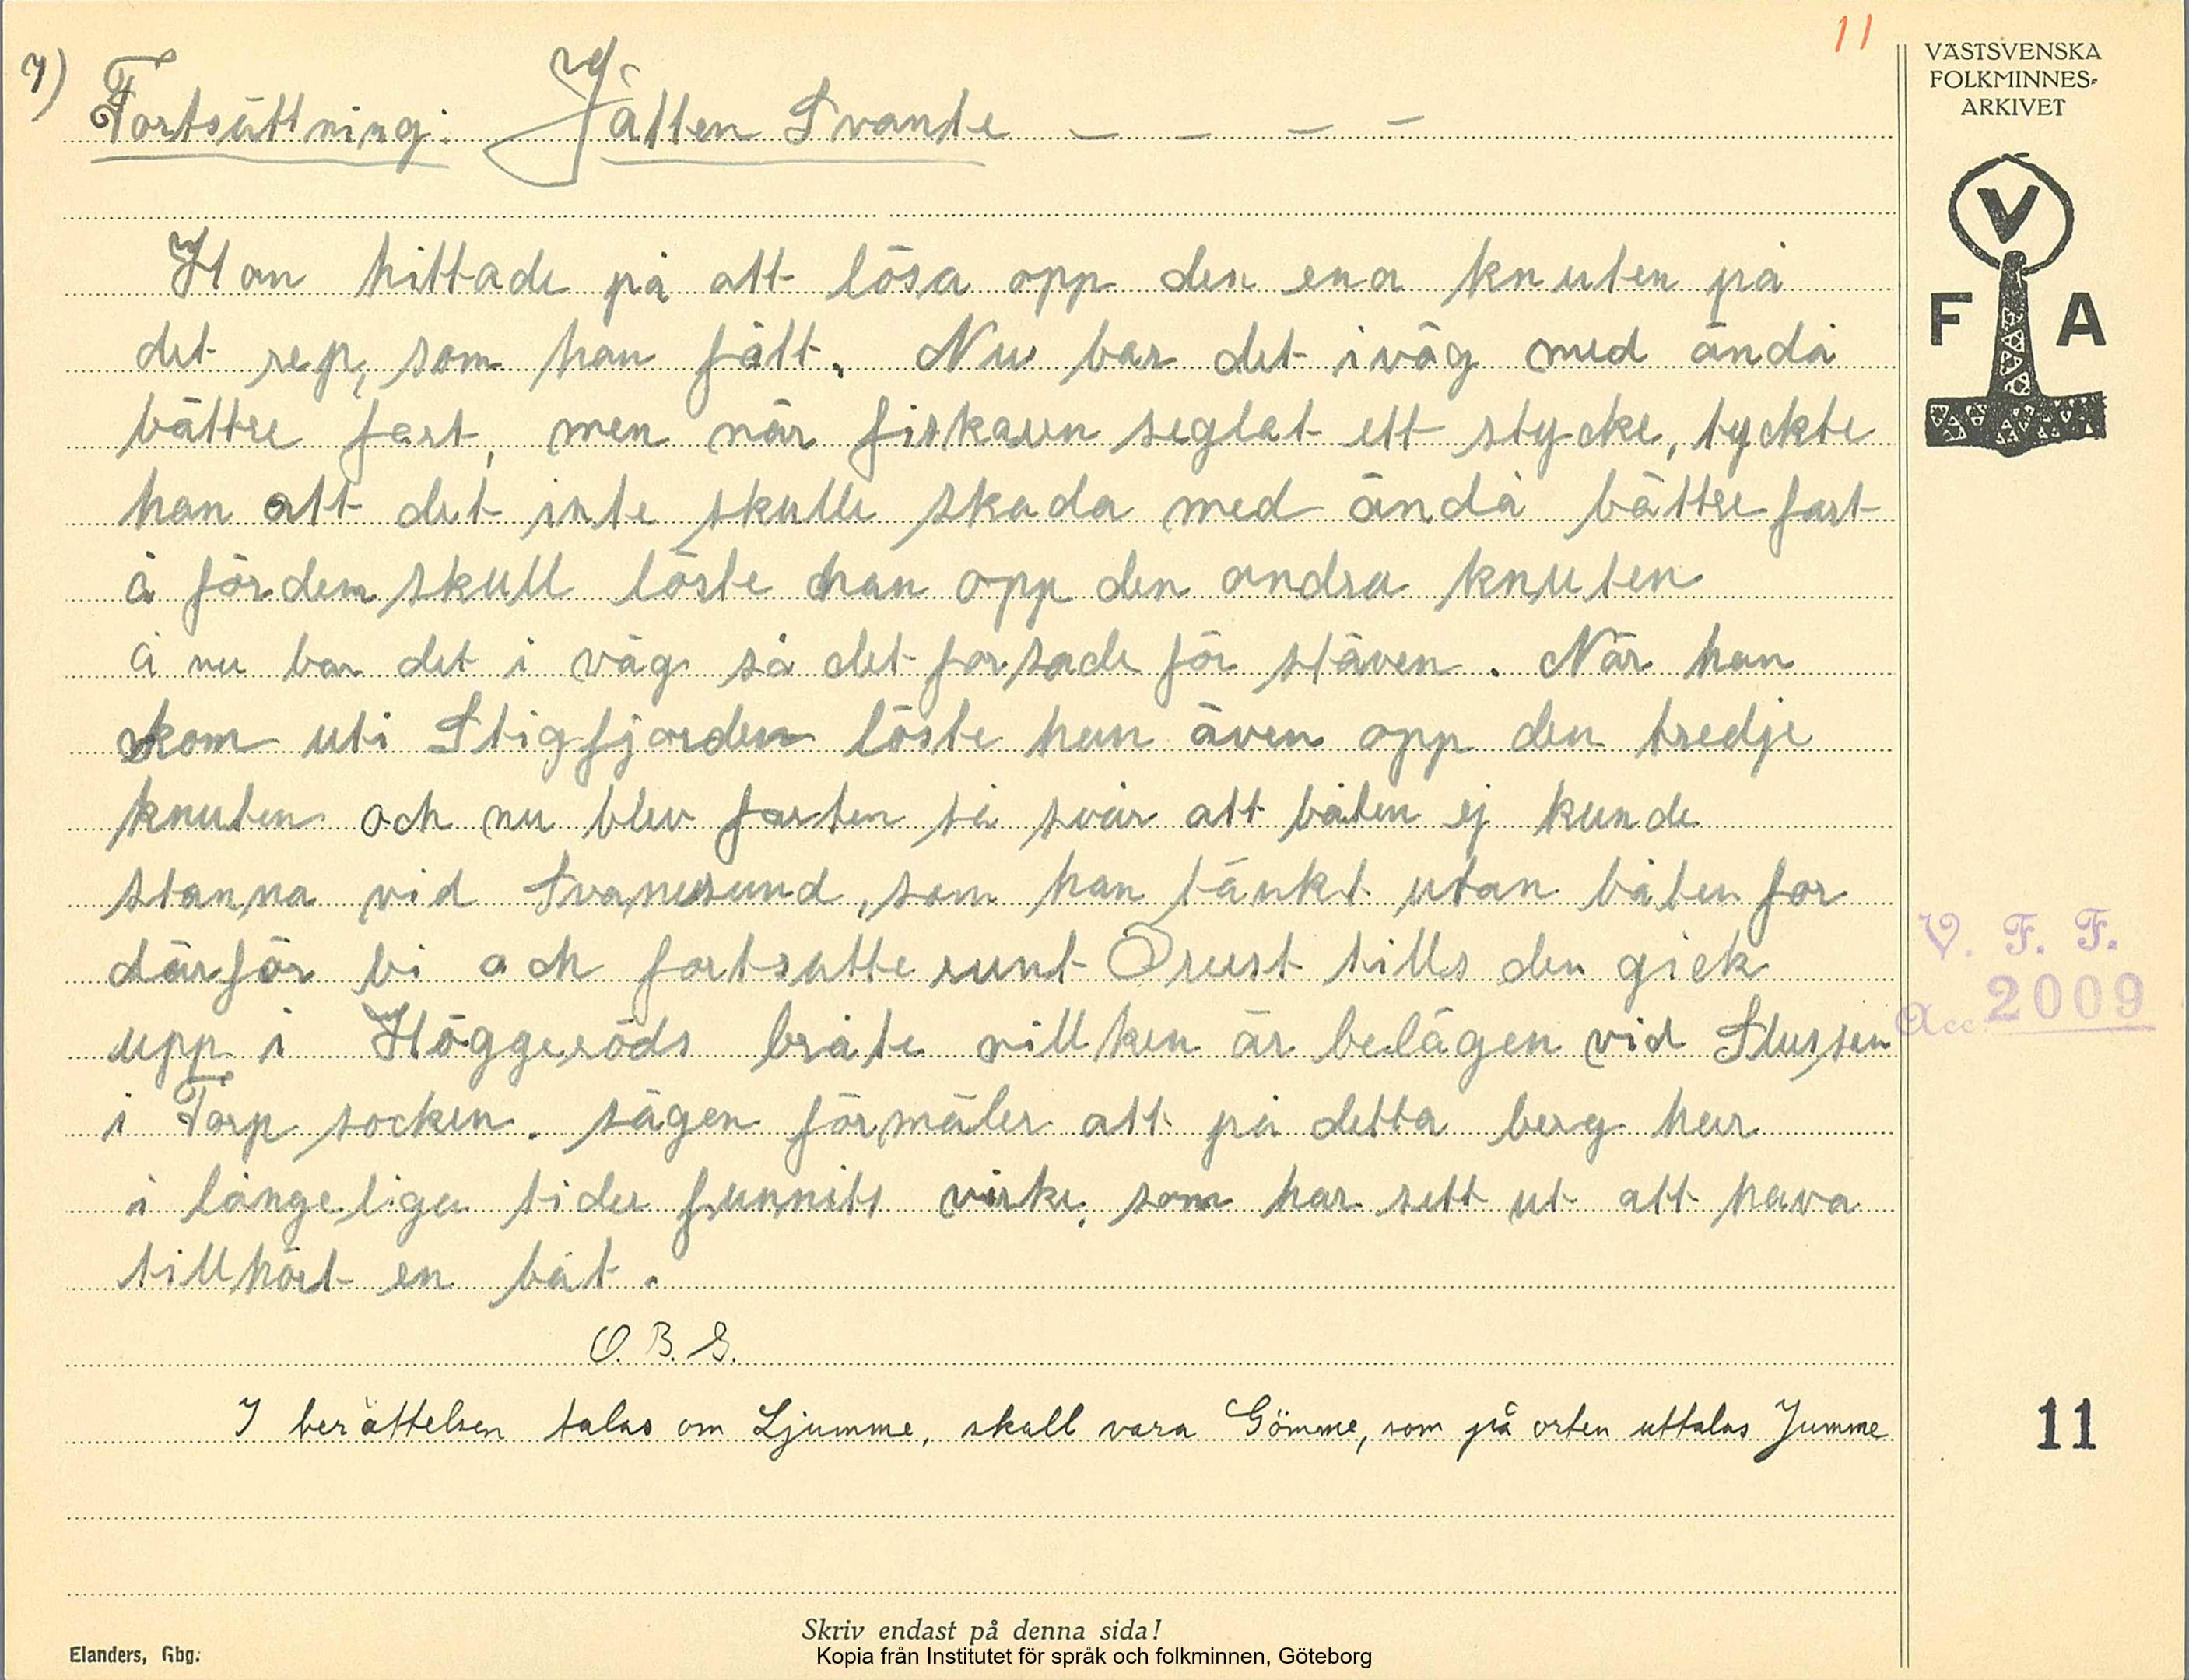 11
7)
Fortsättning: Jätten Svante — — — —
Han hittade på att lösa opp den ena knuten på
det rep, som han fått. Nu bar det iväg med ändå
bättre fart, men när fiskaren seglat ett stycke, tyckte
han att det inte skulle skada med ändå bättre fart
å fördem skull löste han opp den andra knuten
å nu bar det i väg så det forsade för stäven. När han
kom uti Stigfjorden löste han även opp den tredje
knuten och nu blev farten så svår att båten ej kunde
stanna vid Svanesund, som han tänkt utan båten for
därför bi och fortsatte runt Orust tills den gick
upp i Höggeröds bråte villken är belägen vid Slussen
i Torp socken. sägen förmäler att på detta berg har
i långeliga tider funnits virke, som har sett ut att hava
tillhört en båt.
O. B. S.
I berättelsen talas om Ljumme, skall vara Gömme, som på orten uttalas Jumme
Skriv endast på denna sida!
Elanders, Gbg.
Kopia från Institutet för språk och folkminnen, Göteborg
VÄSTSVENSKA
FOLKMINNES-
ARKIVET
V
F A
V. F. F.
Acc. 2009
11